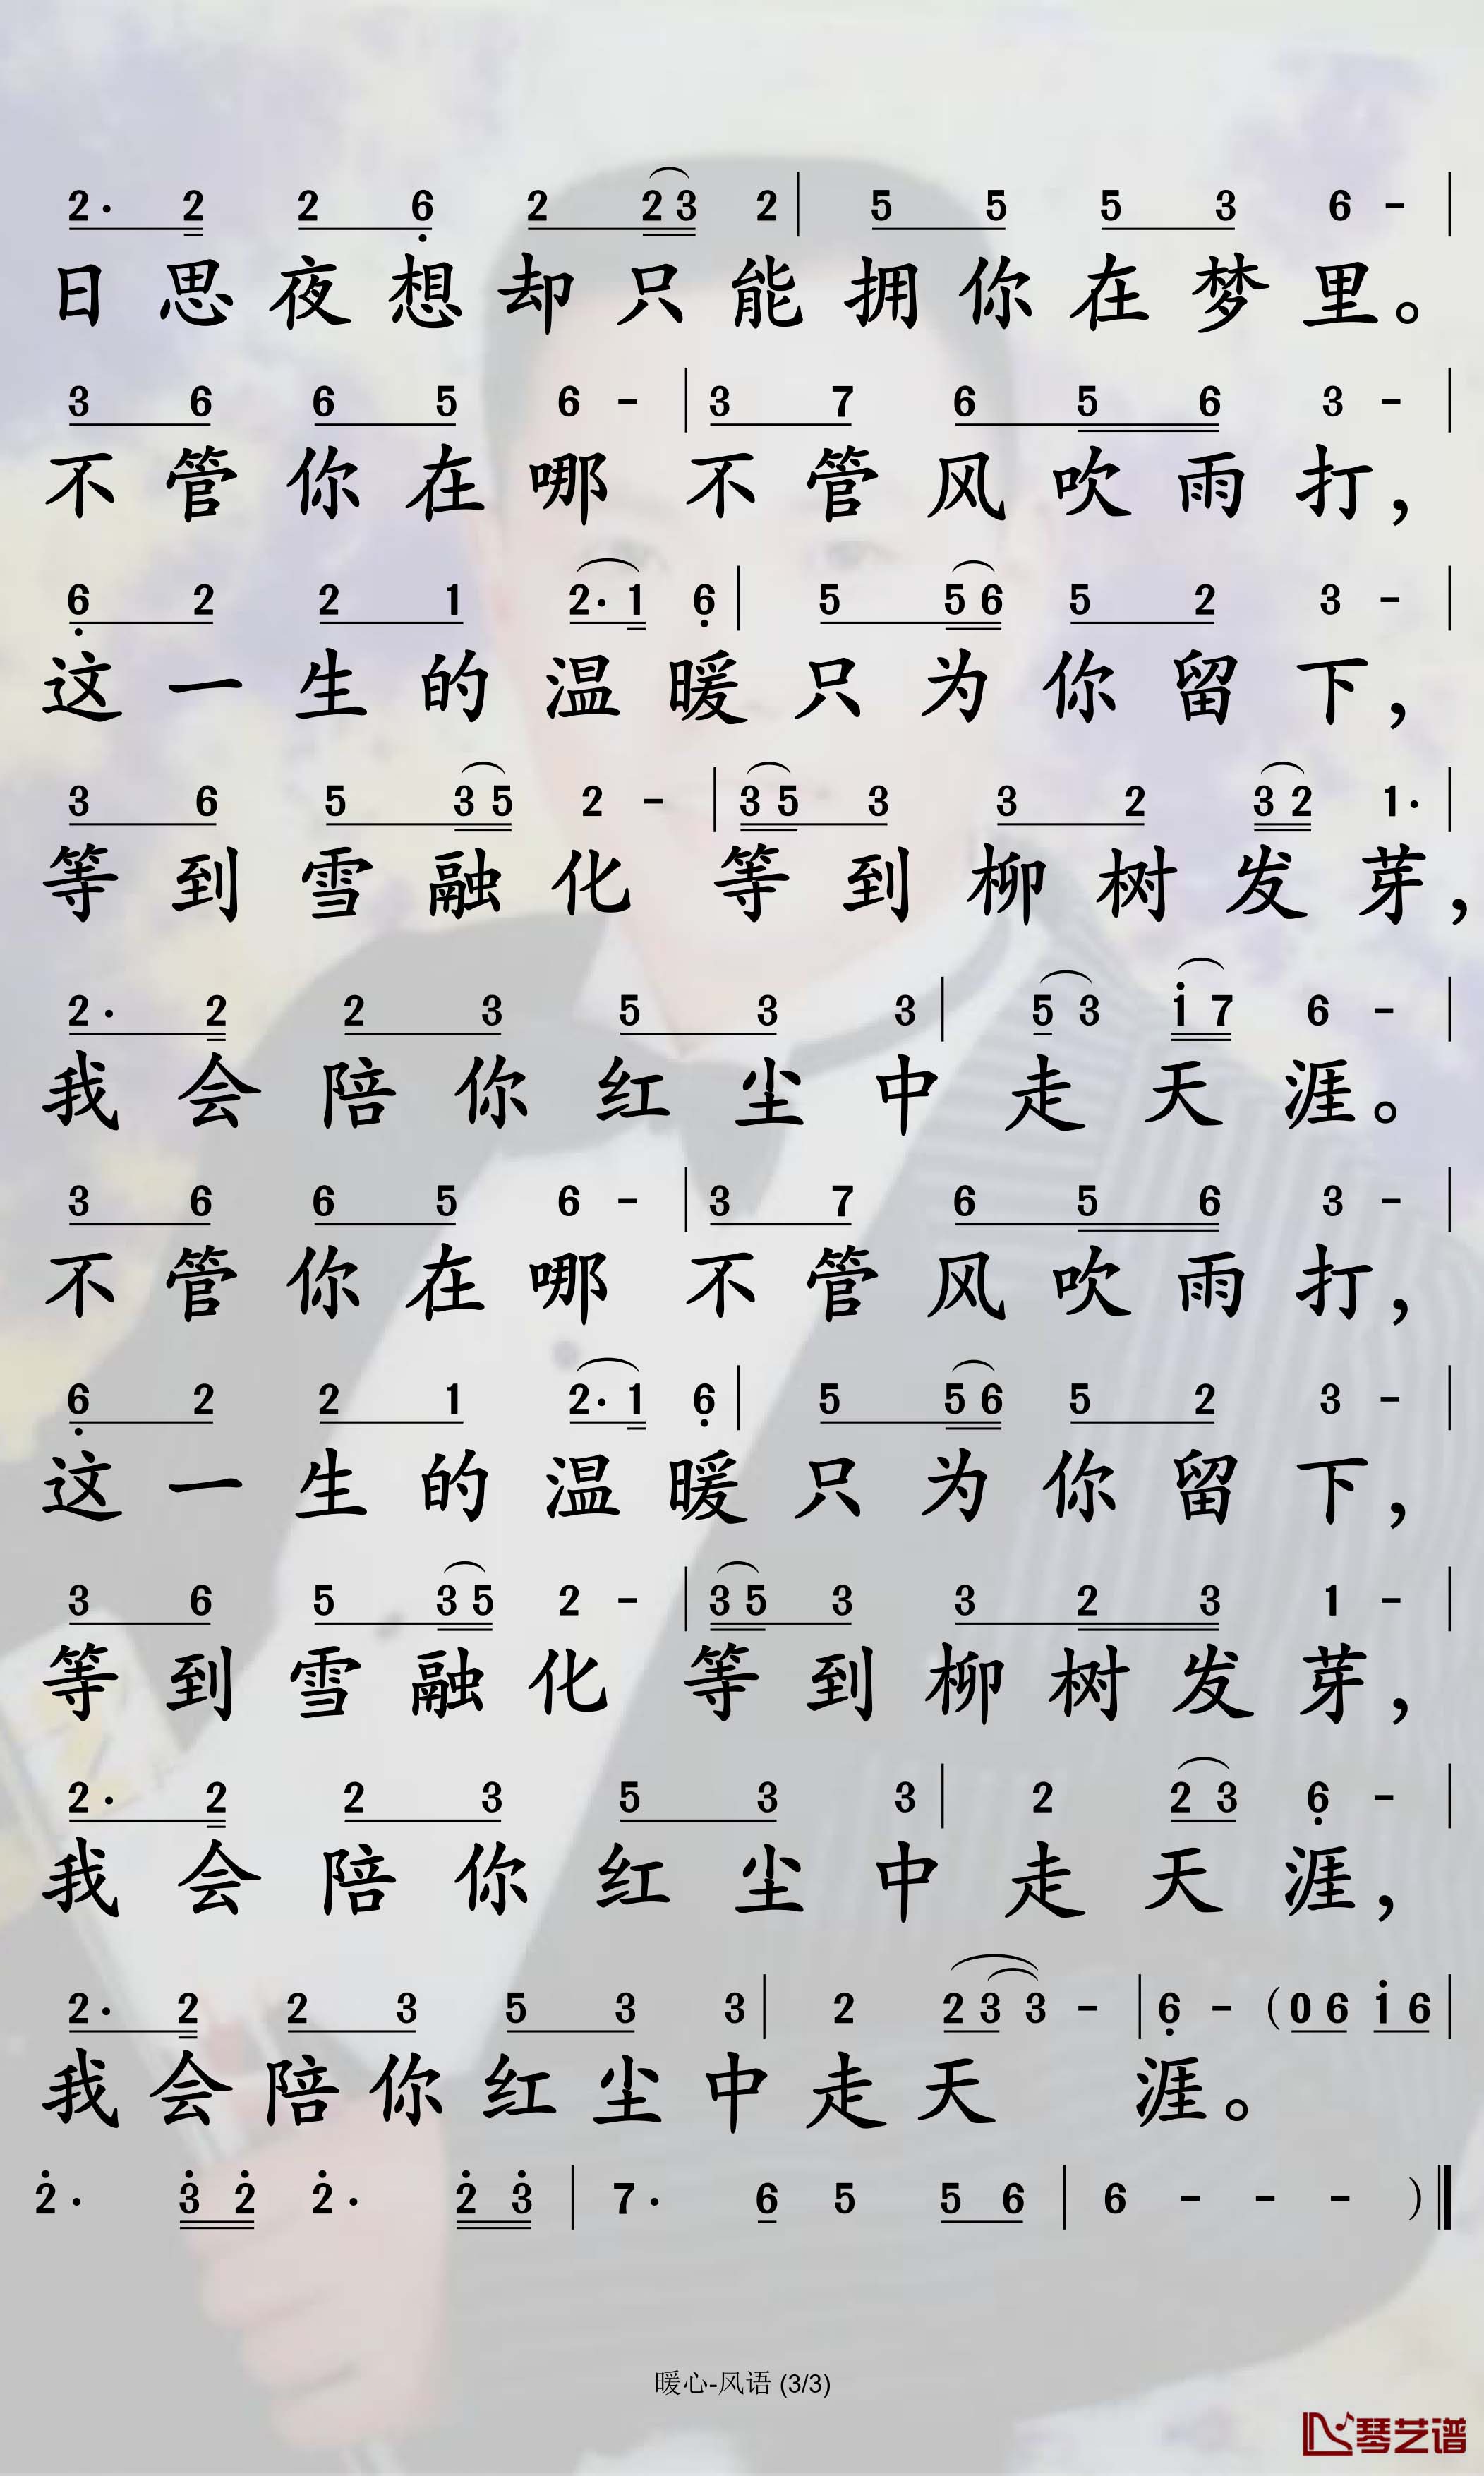 2· 2 2 6 2 2 3 2 | 5 5 5 3 6 - |
日思夜想却只能拥你在梦里。
3 6 6 5 6 - | 3 7 6 5 6 3 - |
不管你在哪 不管风吹雨打，
6 2 2 1 2· 1 6 | 5 5 6 5 2 3 - |
这一生的温暖只为你留下，
3 6 5 3 5 2 - | 3 5 3 3 2 3 2 1· |
等到雪融化 等到柳树发芽，
2· 2 2 3 5 3 3 | 5 3 i 7 6 - |
我会陪你红尘中走天涯。
3 6 6 5 6 - | 3 7 6 5 6 3 - |
不管你在哪 不管风吹雨打，
6 2 2 1 2· 1 6 | 5 5 6 5 2 3 - |
这一生的温暖只为你留下，
3 6 5 3 5 2 - | 3 5 3 3 2 3 1 - |
等到雪融化 等到柳树发芽，
2· 2 2 3 5 3 3 | 2 2 3 6 - |
我会陪你红尘中走天涯，
2· 2 2 3 5 3 3 | 2 2 3 3 - | 6 - (0 6 i 6 |
我会陪你红尘中走天 涯。
2· 3 2 2· 2 3 | 7· 6 5 5 6 | 6 - - - )
暖心-风语 (3/3)
琴艺谱